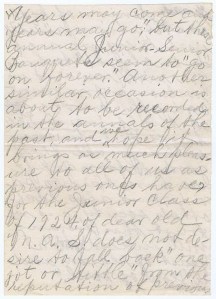 "Years may come and
years may go," but the
annual Junior Senior
Banquets seem to "go
on forever." Another
similar occasion is
about to be recorded
in the annals of the
past, and we hope it
brings as much pleas-
ure to all of us as
previous ones have,
for the Junior Class
of 1924 of dear old
M. A. S. does not de-
sire to fall back "one
jot or tittle" from the
reputation of previous